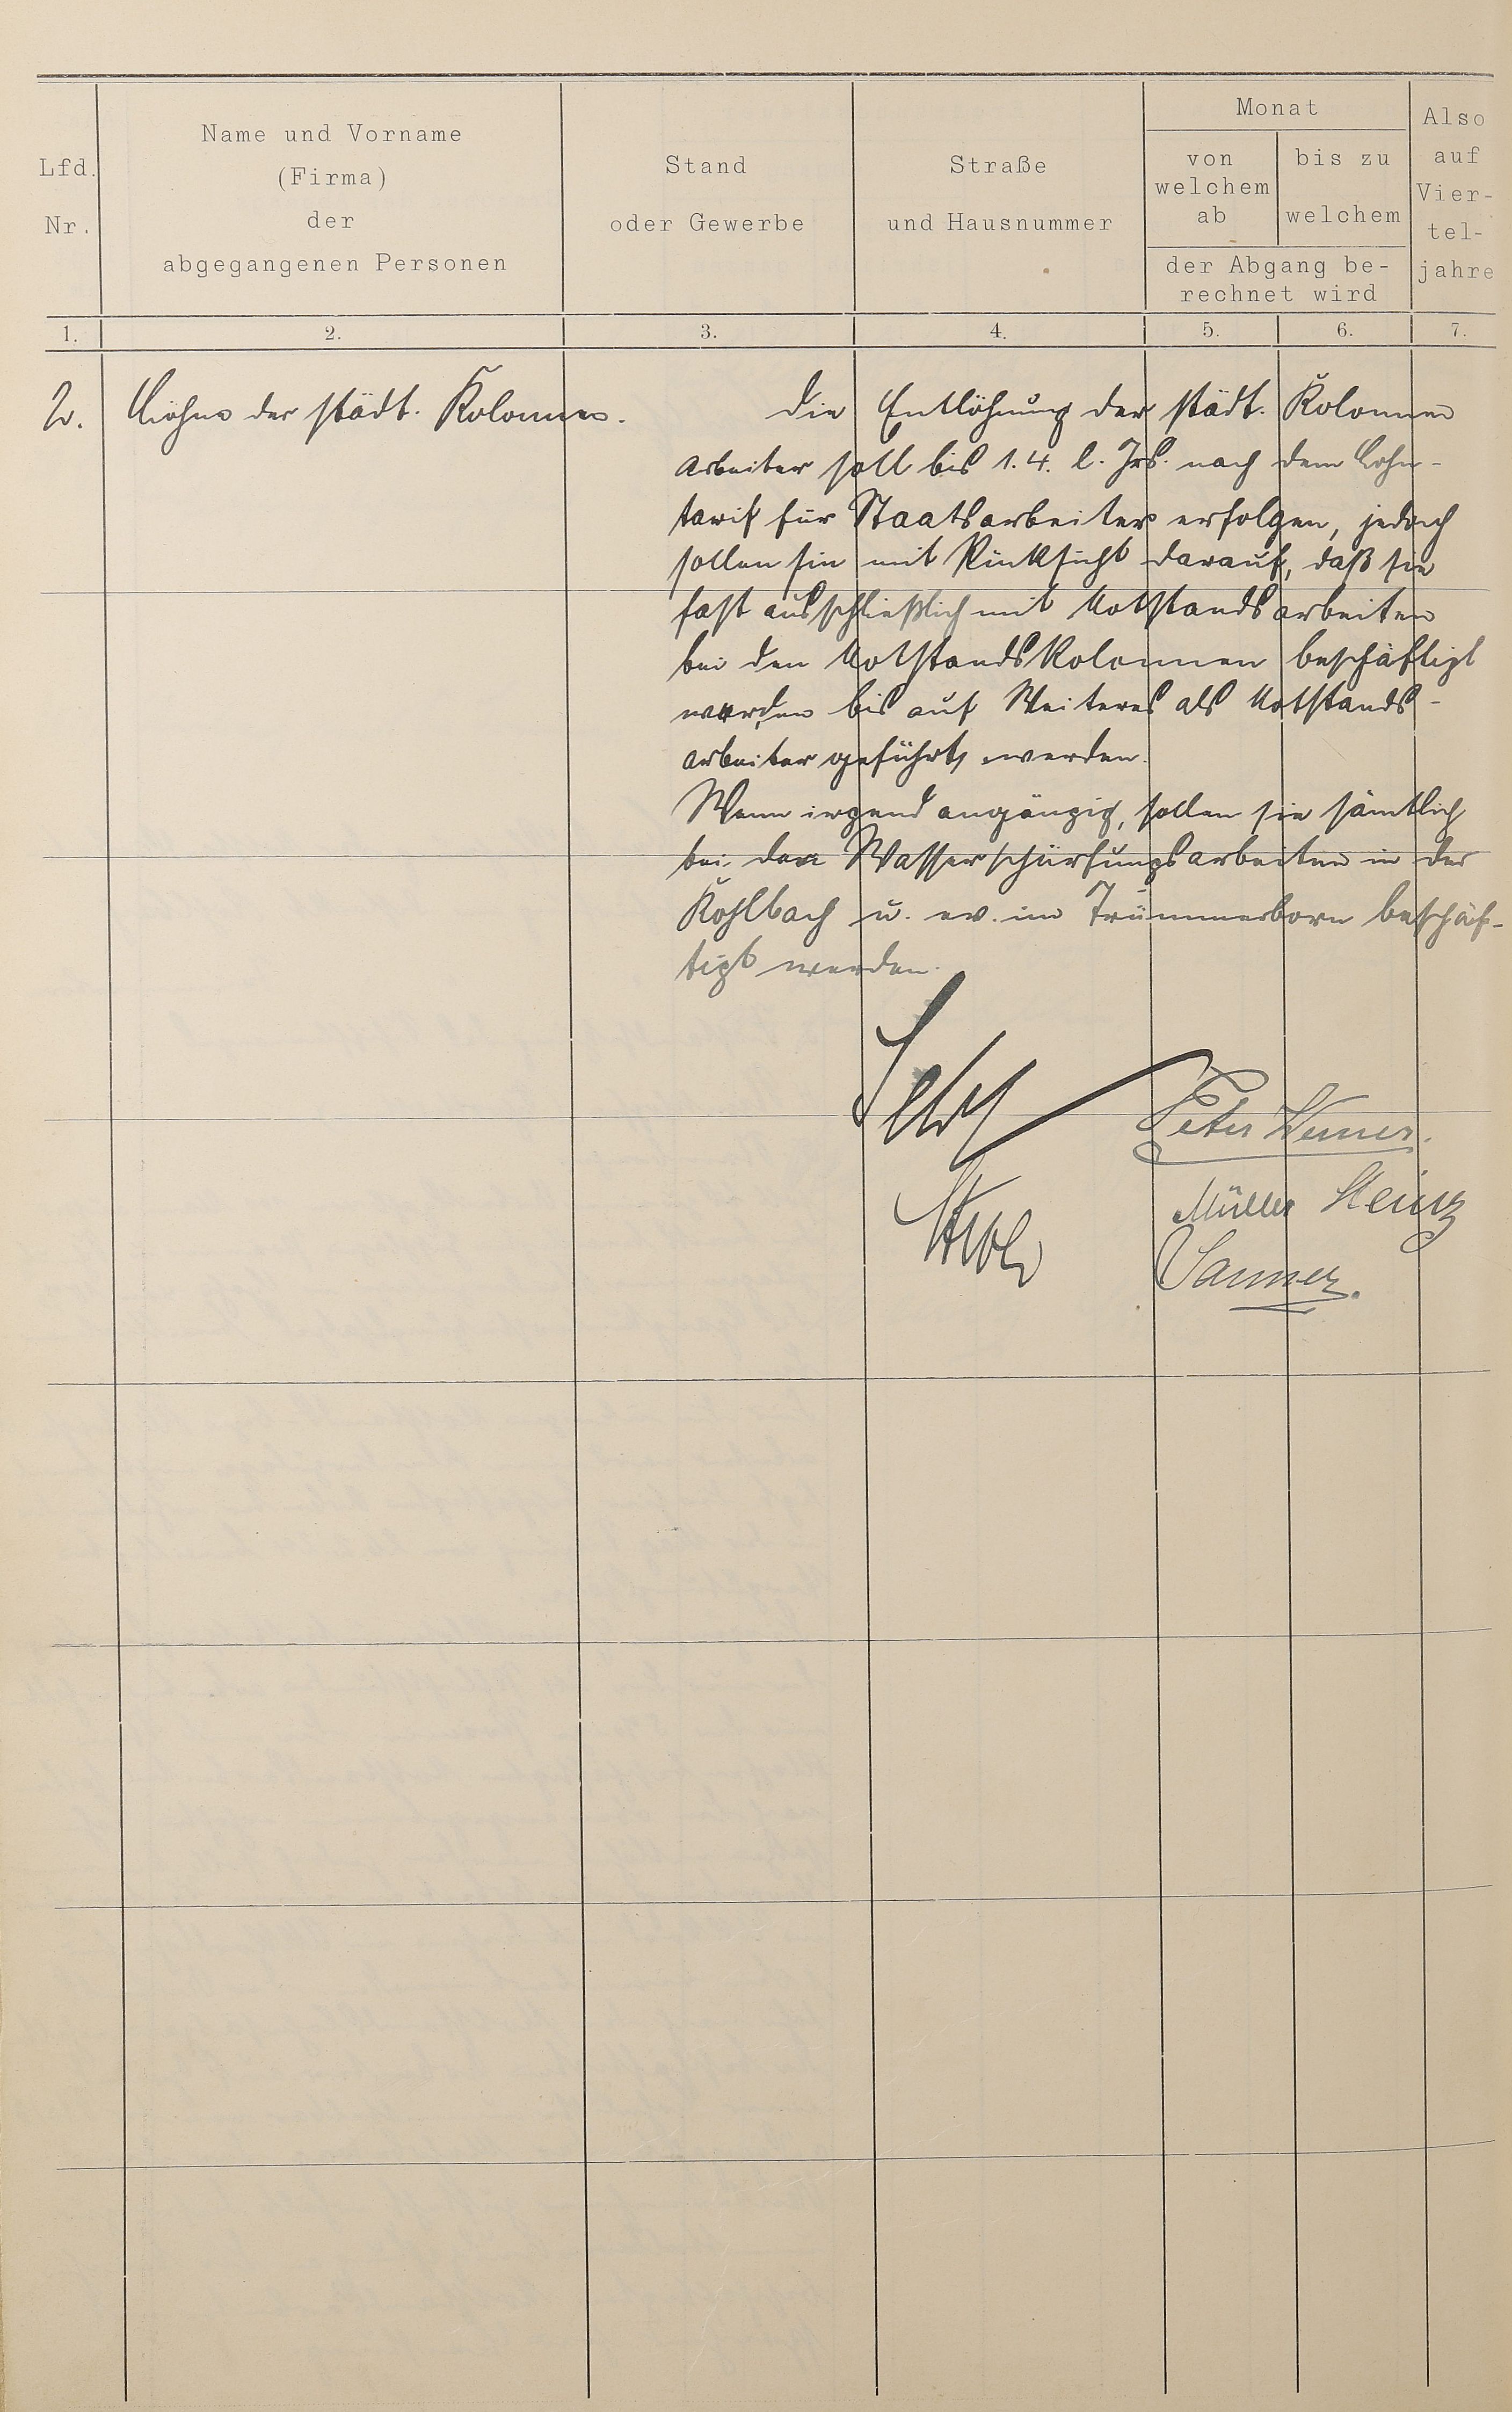 Lfd. Nr.
Name und Vorname
(Firma)
der
abgegangenen Personen
Stand
oder Gewerbe
Straße
und Hausnummer
Monat
von
welchem
ab
bis zu
welchem
der Abgang be-
rechnet wird
Also
auf
Vier-
tel-
jahre
1. 2. 3. 4. 5. 6. 7.
2. Löhne der städt. Kolonnen. Die Entlöhnung der städt. Kolonnen
arbeiter soll bis 1.4. l. Jrs. nach dem Lohn-
tarif für Staatsarbeiter erfolgen, jedoch
sollen sie mit Rücksicht darauf, daß sie
fast ausschließlich mit Notstandsarbeiten
bei den Notstandskolonnen beschäftigt
werden bis auf Weiteres als Notstands-
arbeiter geführt werden.
Wenn irgend angängig, sollen sie sämtlich
bei den Wasserschürfungsarbeiten in der
Kohlbach u. ev. im Trümmerborn beschäf-
tigt werden.
Peter Werner.
Müller Heinz
Sanner.